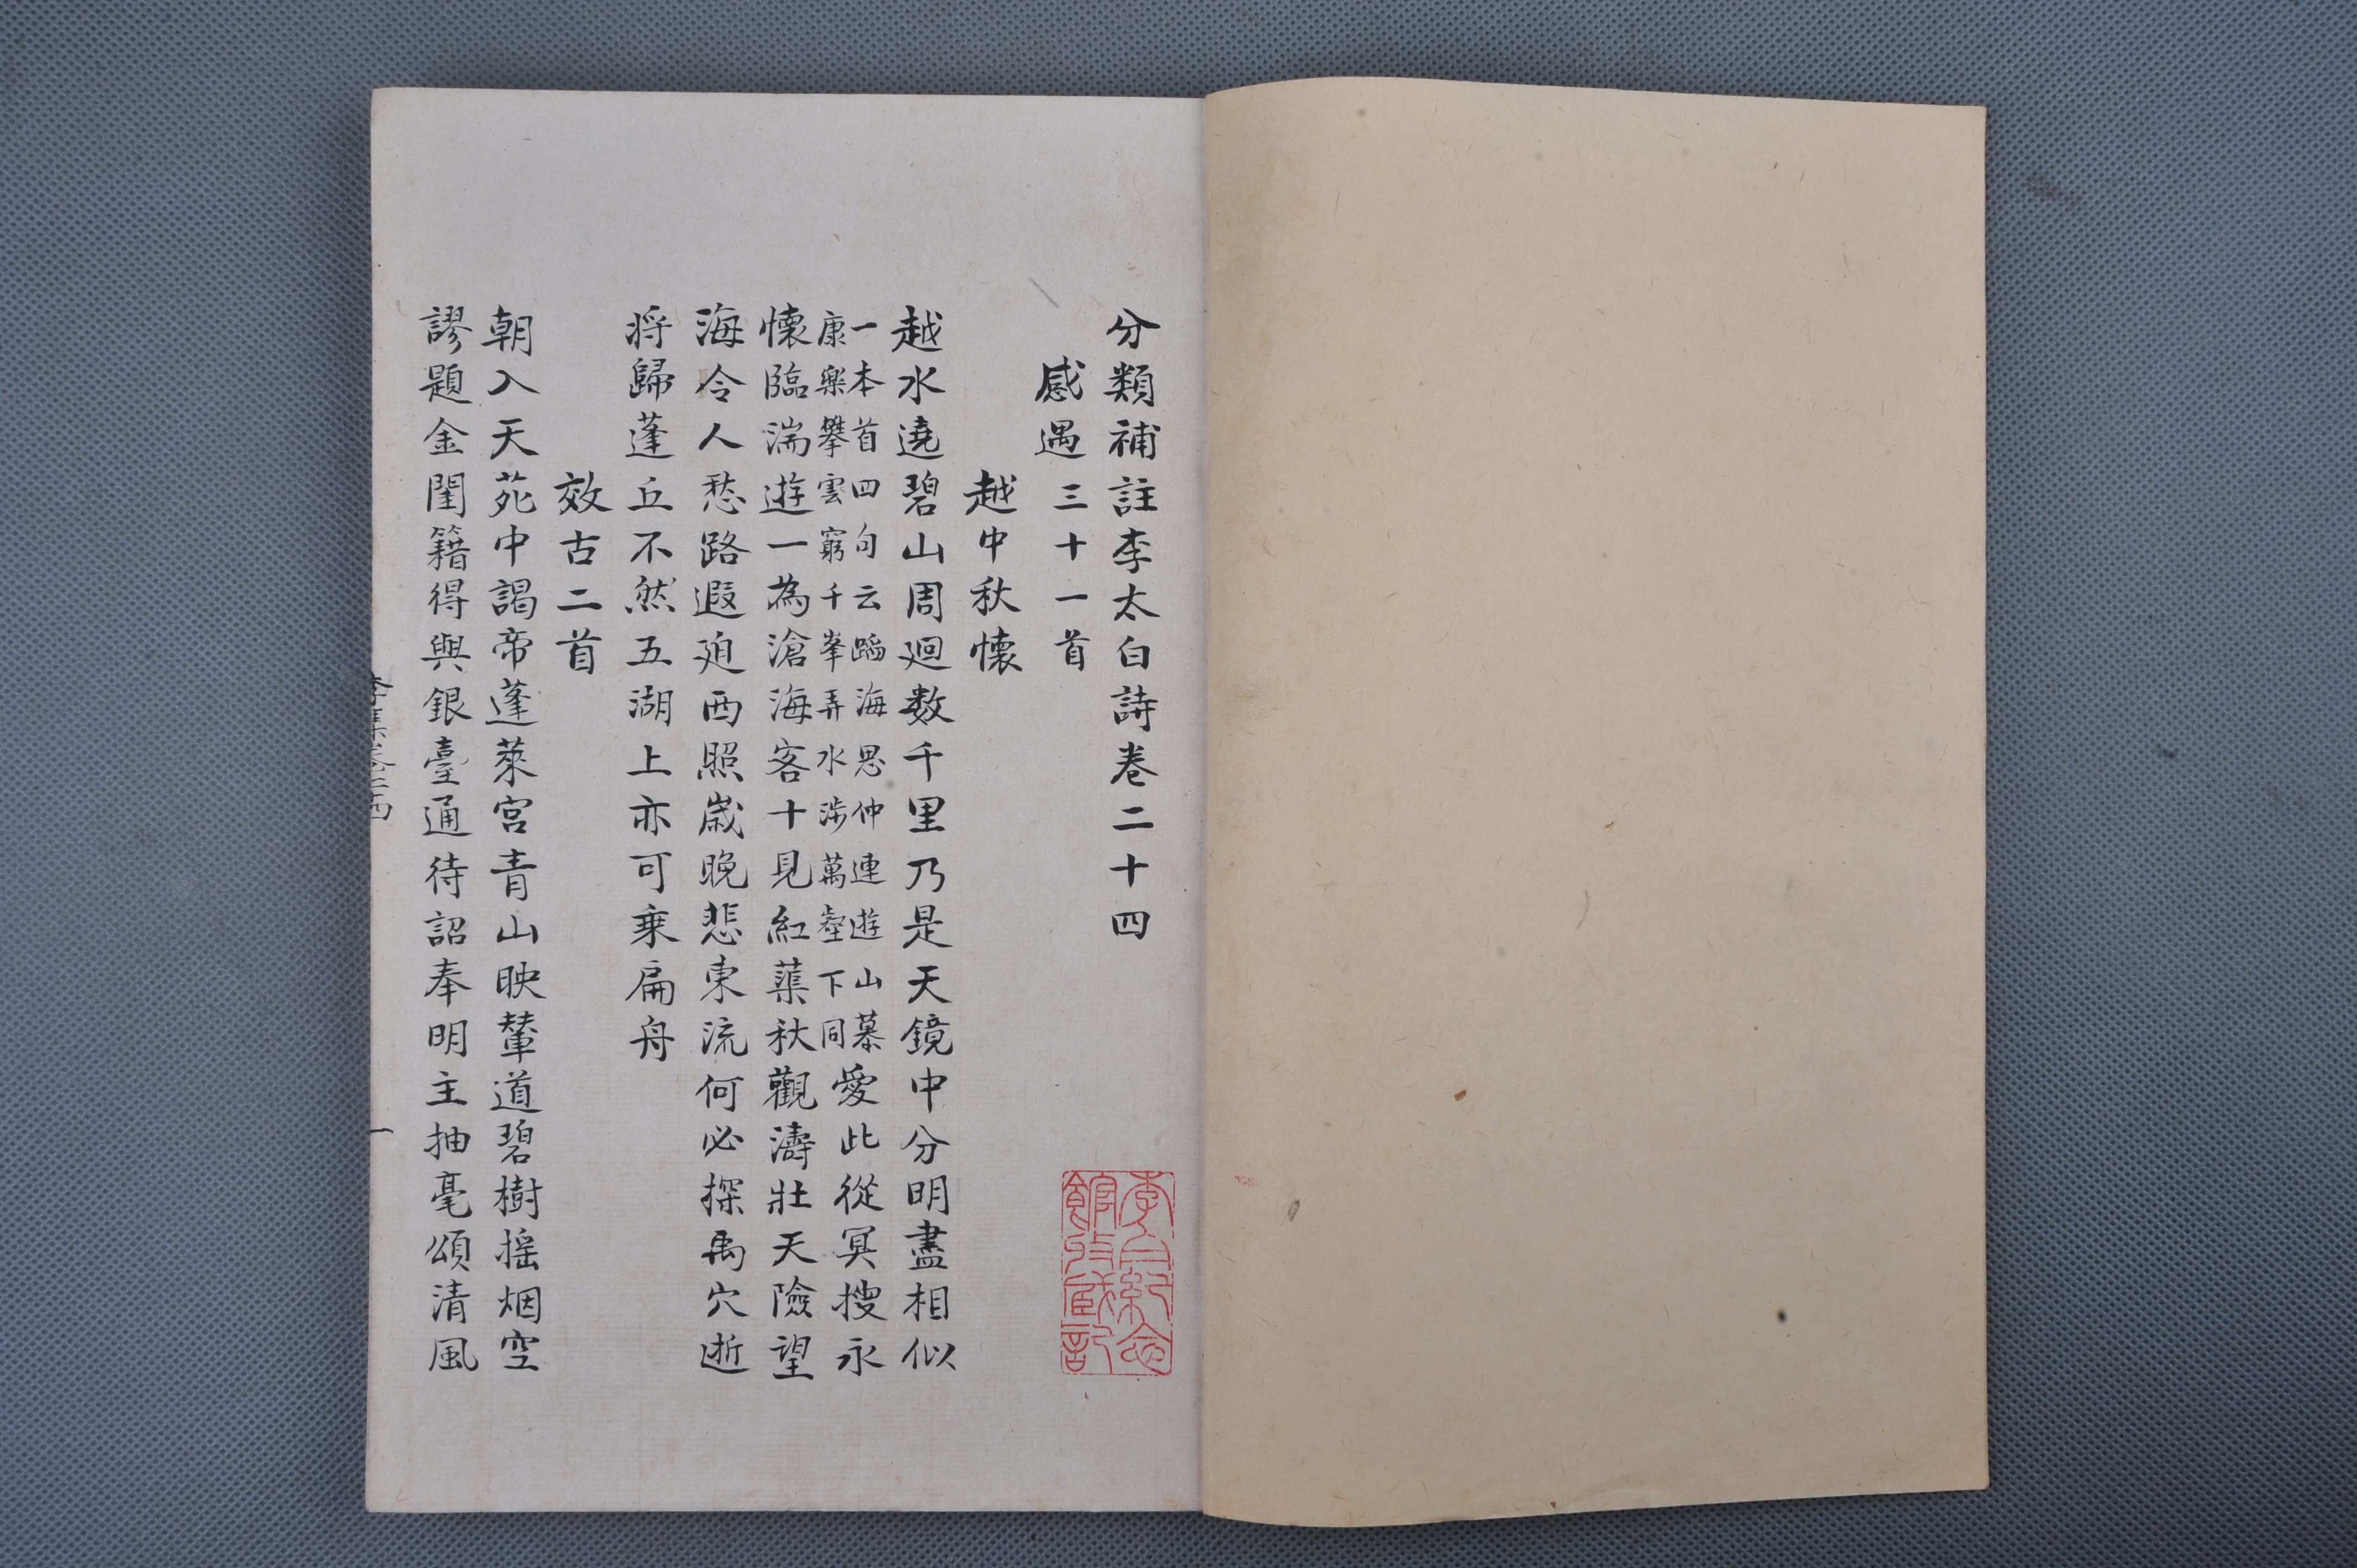 分類補註李太白詩卷二十四
感遇三十一首
越中秋懷
越水遶碧山周廻数千里乃是天鏡中分明盡相似
一本首四句云蹈海思仲連遊山慕
康樂攀雲窮千峯弄水涉萬壑下同
愛此從冥搜永
懷臨湍遊一為滄海客十見紅蕖秋觀濤壯天險望
海令人愁路遐廹西照歳晚悲東流何必探禹穴逝
将歸蓬丘不然五湖上亦可乗扁舟
效古二首
朝入天苑中謁帝蓬萊宮青山映輦道碧樹揺烟空
謬題金閨籍得與銀臺通待詔奉明主抽毫頌清風
李集卷二十四
一
李白紀念
館所臧記